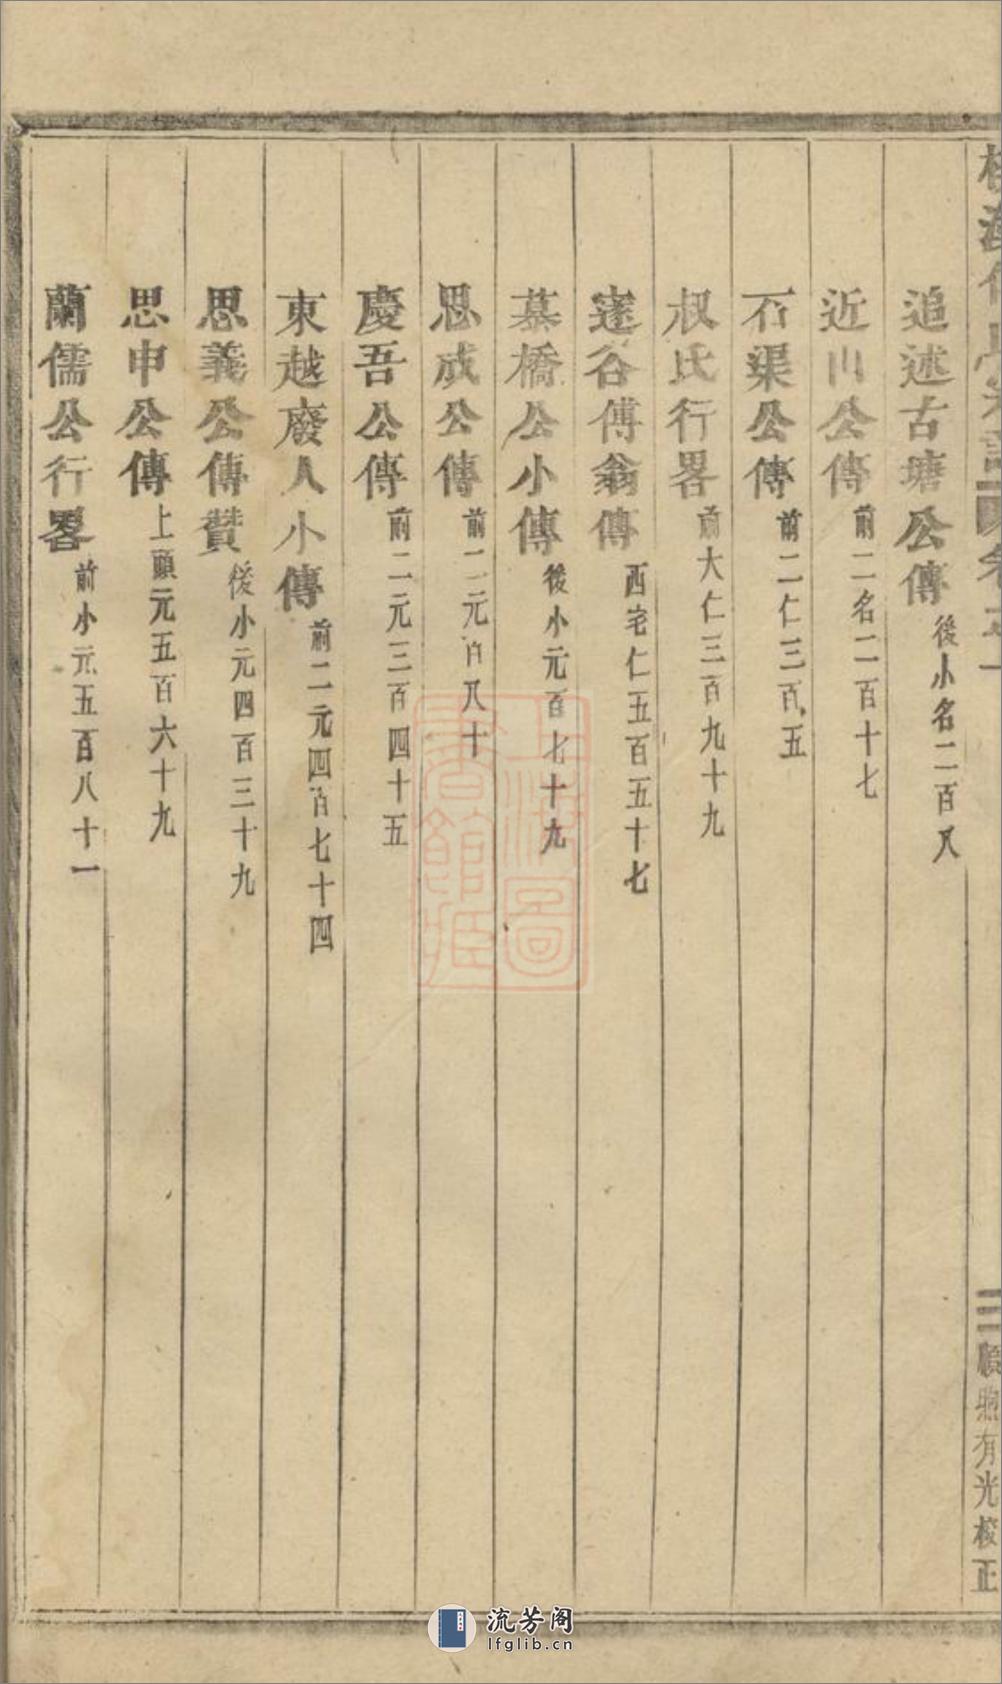 追述古塘公傳後小名二百八
近山公傳前二名二百十七
石渠公傳前二仁三百五
叔氏行畧前大仁三百九十九
蓬谷傅翁傳西宅仁五百五十七
慕橋公小傳後小元百七十九
思成公傳前二元百八十
慶吾公傳前二元三百四十五
東越廢人小傳前二元四百七十四
思義公傳贊後小元四百三十九
思申公傳上頭元五百六十九
蘭儒公行畧前小元五百八十一
三 順煦有光校正
上海圖書館藏
流芳阁
lfglib.cn